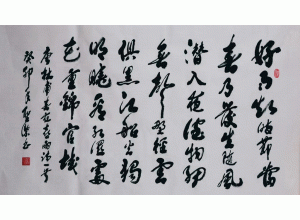 好雨知時節當
春乃發生隨風
潛入夜潤物細
無聲野徑雲
俱黑江船火獨
明曉看紅濕處
花重錦官城
唐杜甫春夜喜雨詩一首
癸卯年